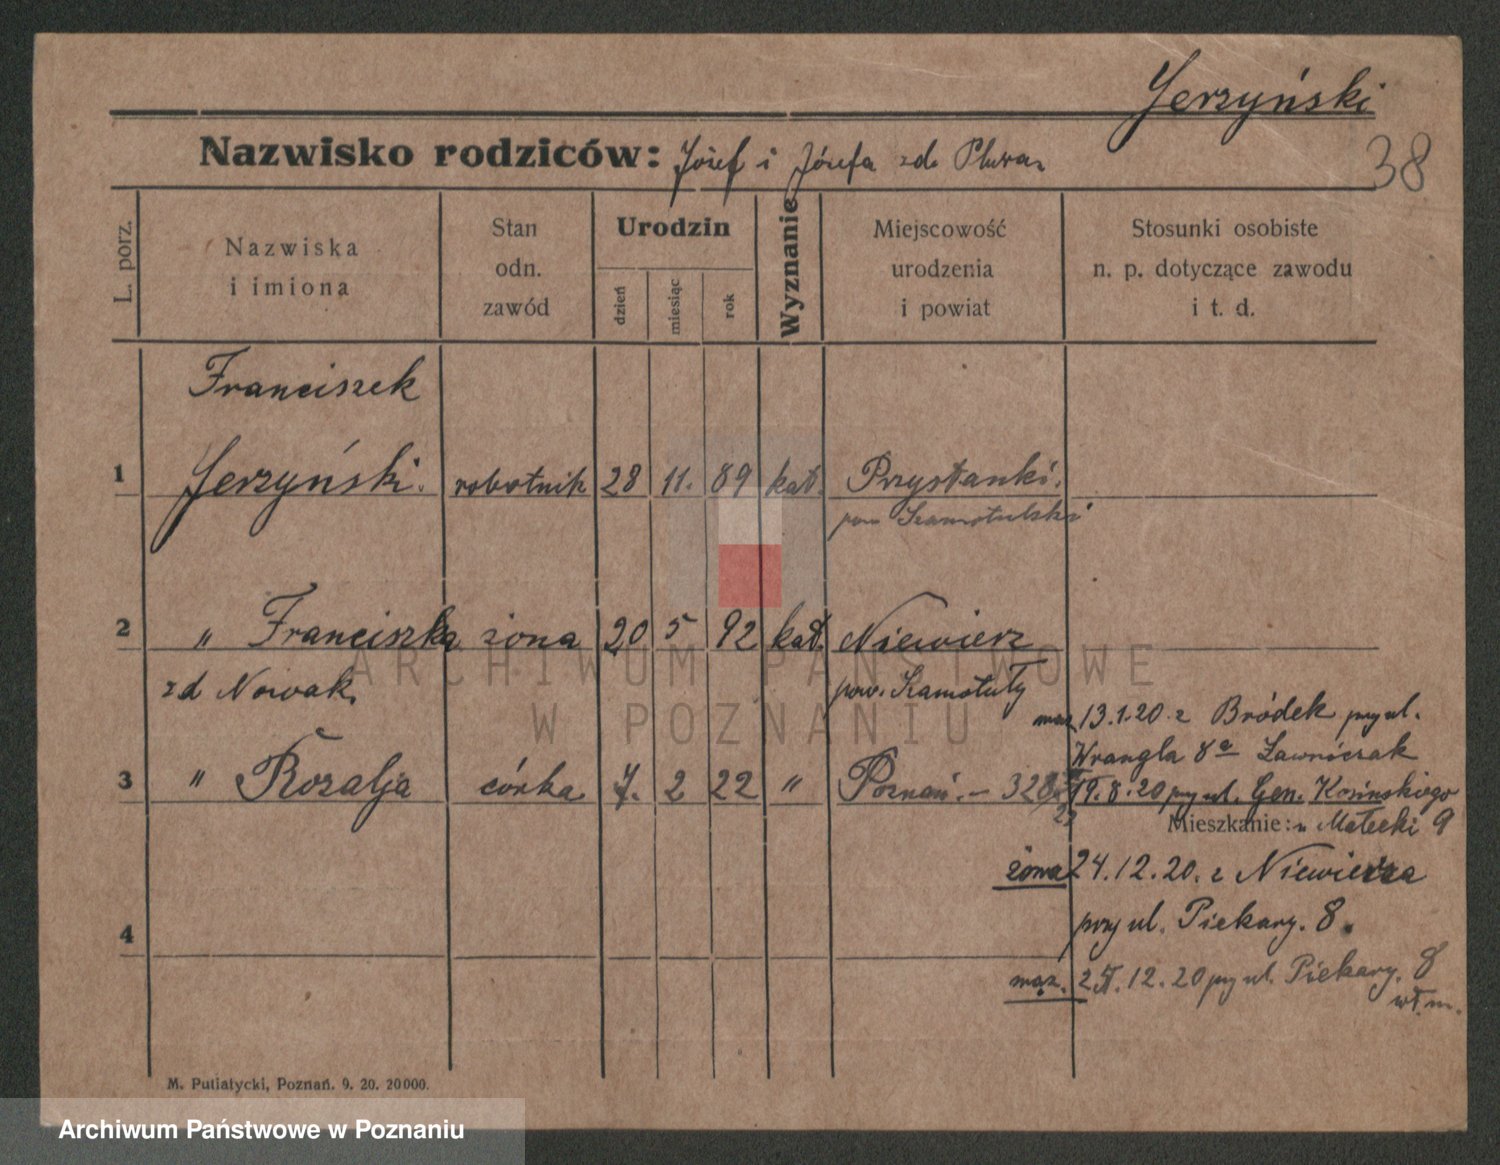 Jerzyński
38
Nazwisko rodziców: Józef i Józefa zd.
L. porz.
Nazwiska i imiona
Stan odn. zawód
Urodzin
dzień
miesiąc
rok
Wyznanie
Miejscowość urodzenia i powiat
Stosunki osobiste n. p. dotyczące zawodu i t. d.
Franciszek
1 Jerzyński. robotnik 28 11. 89 kat. Przystanki.
pow Szamotulski
2 " Franciszka żona 20 5 92 kat. Niewierz
zd Nowak. pow. Szamotuły
mąż 13.1.20. z Bródek przy ul.
Wrangla 8a Ławniczak
3 " Rozalja córka 7. 2 22 " Poznań. –
19.8.20 przy ul. Gen. Kosińskiego
Mieszkanie: u Małecki 9
żona 24.12.20. z Niewierza
przy ul. Piekary. 8.
4
mąż. 12.20 przy ul. Piekary. 8
wł. m.
M. Putiatycki, Poznań. 9. 20. 20000.
ARCHIWUM PAŃSTWOWE
W POZNANIU
Archiwum Państwowe w Poznaniu